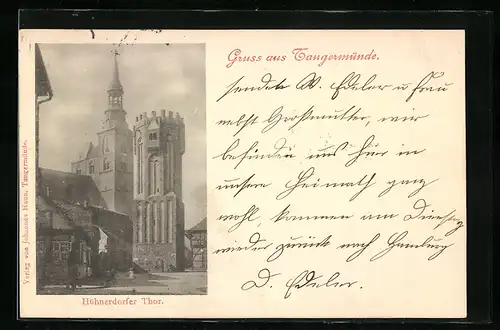 Gruss aus Tangermünde.
sendet W. Edeler u Frau
nebst Großmutter, wir
befinden uns hier in
unsere Heimath ganz
wohl, kommen am Dienstag
wieder zurück nach Hamburg
D. Edeler.
Hühnerdorfer Thor.
Verlag von Johannes Haun, Tangermünde.